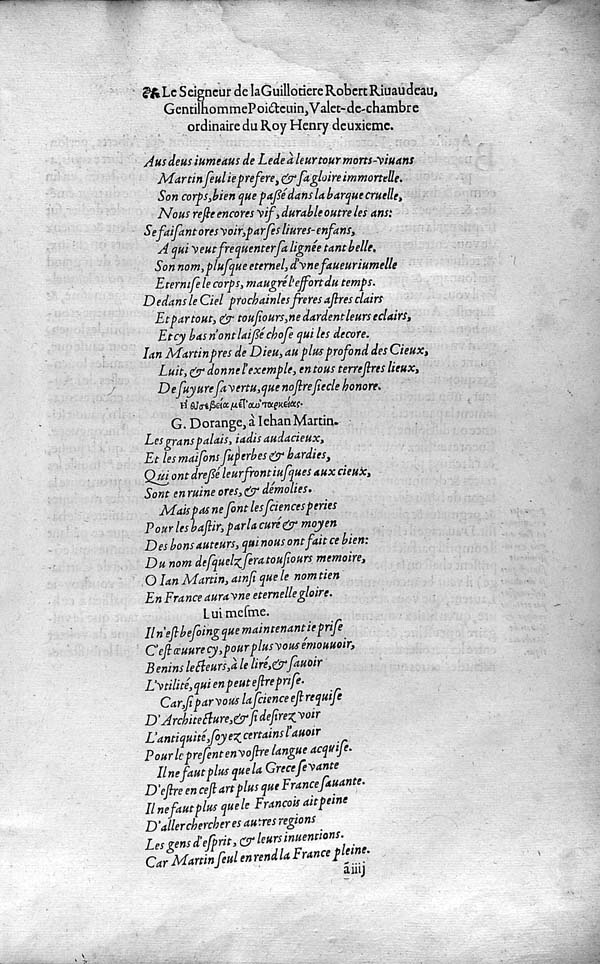 Le Seigneur de la Guillotiere Robert Riuaudeau,
Gentilhomme Poicteuin, Valet-de-chambre
ordinaire du Roy Henry deuxieme.
Aus deus iumeaus de Lede à leur tour morts-viuans
Martin ſeul ie prefere, & ſa gloire immortelle.
Son corps, bien que paßé dans la barque cruelle,
Nous reſte encores vif, durable outre les ans:
Se faiſant ores voir, par ſes liures-enfans,
A qui veut frequenter ſa lignée tant belle.
Son nom, pluſque eternel, d'vne faueur iumelle
Eterniſe le corps, maugré l'effort du temps.
Dedans le Ciel prochain les freres aſtres clairs
Et par tout, & touſiours, ne dardent leurs eclairs,
Et cy bas n'ont laißé choſe qui les decore.
Ian Martin pres de Dieu, au plus profond des Cieux,
Luit, & donne l'exemple, en tous terreſtres lieux,
De ſuyure ſa vertu, que noſtre ſiecle honore.
Ἡ θεοσεβεία μετ' αὐταρκείας.
G. Dorange, à Iehan Martin.
Les grans palais, iadis audacieux,
Et les maiſons ſuperbes & hardies,
Qui ont dreßé leur front iuſques aux cieux,
Sont en ruine ores, & démolies.
Mais pas ne ſont les ſciences peries
Pour les baſtir, par la curé & moyen
Des bons auteurs, qui nous ont fait ce bien:
Du nom deſquelz ſera touſiours memoire,
O Ian Martin, ainſi que le nom tien
En France aura vne eternelle gloire.
Lui meſme.
Il n'eſt beſoing que maintenant ie priſe
C'eſt œuure cy, pour plus vous émouuoir,
Benins lecteurs, à le liré, & ſauoir
L'vtilité, qui en peut eſtre priſe.
Car, ſi par vous la ſcience eſt requiſe
D'Architecture, & ſi deſirez voir
L'antiquité, ſoyez certains l'auoir
Pour le preſent en voſtre langue acquiſe.
Il ne faut plus que la Grece ſe vante
D'eſtre en ceſt art plus que France ſauante.
Il ne faut plus que le Francois ait peine
D'aller chercher es autres regions
Les gens d'eſprit, & leurs inuentions.
Car Martin ſeul en rend la France pleine.
ãiiij